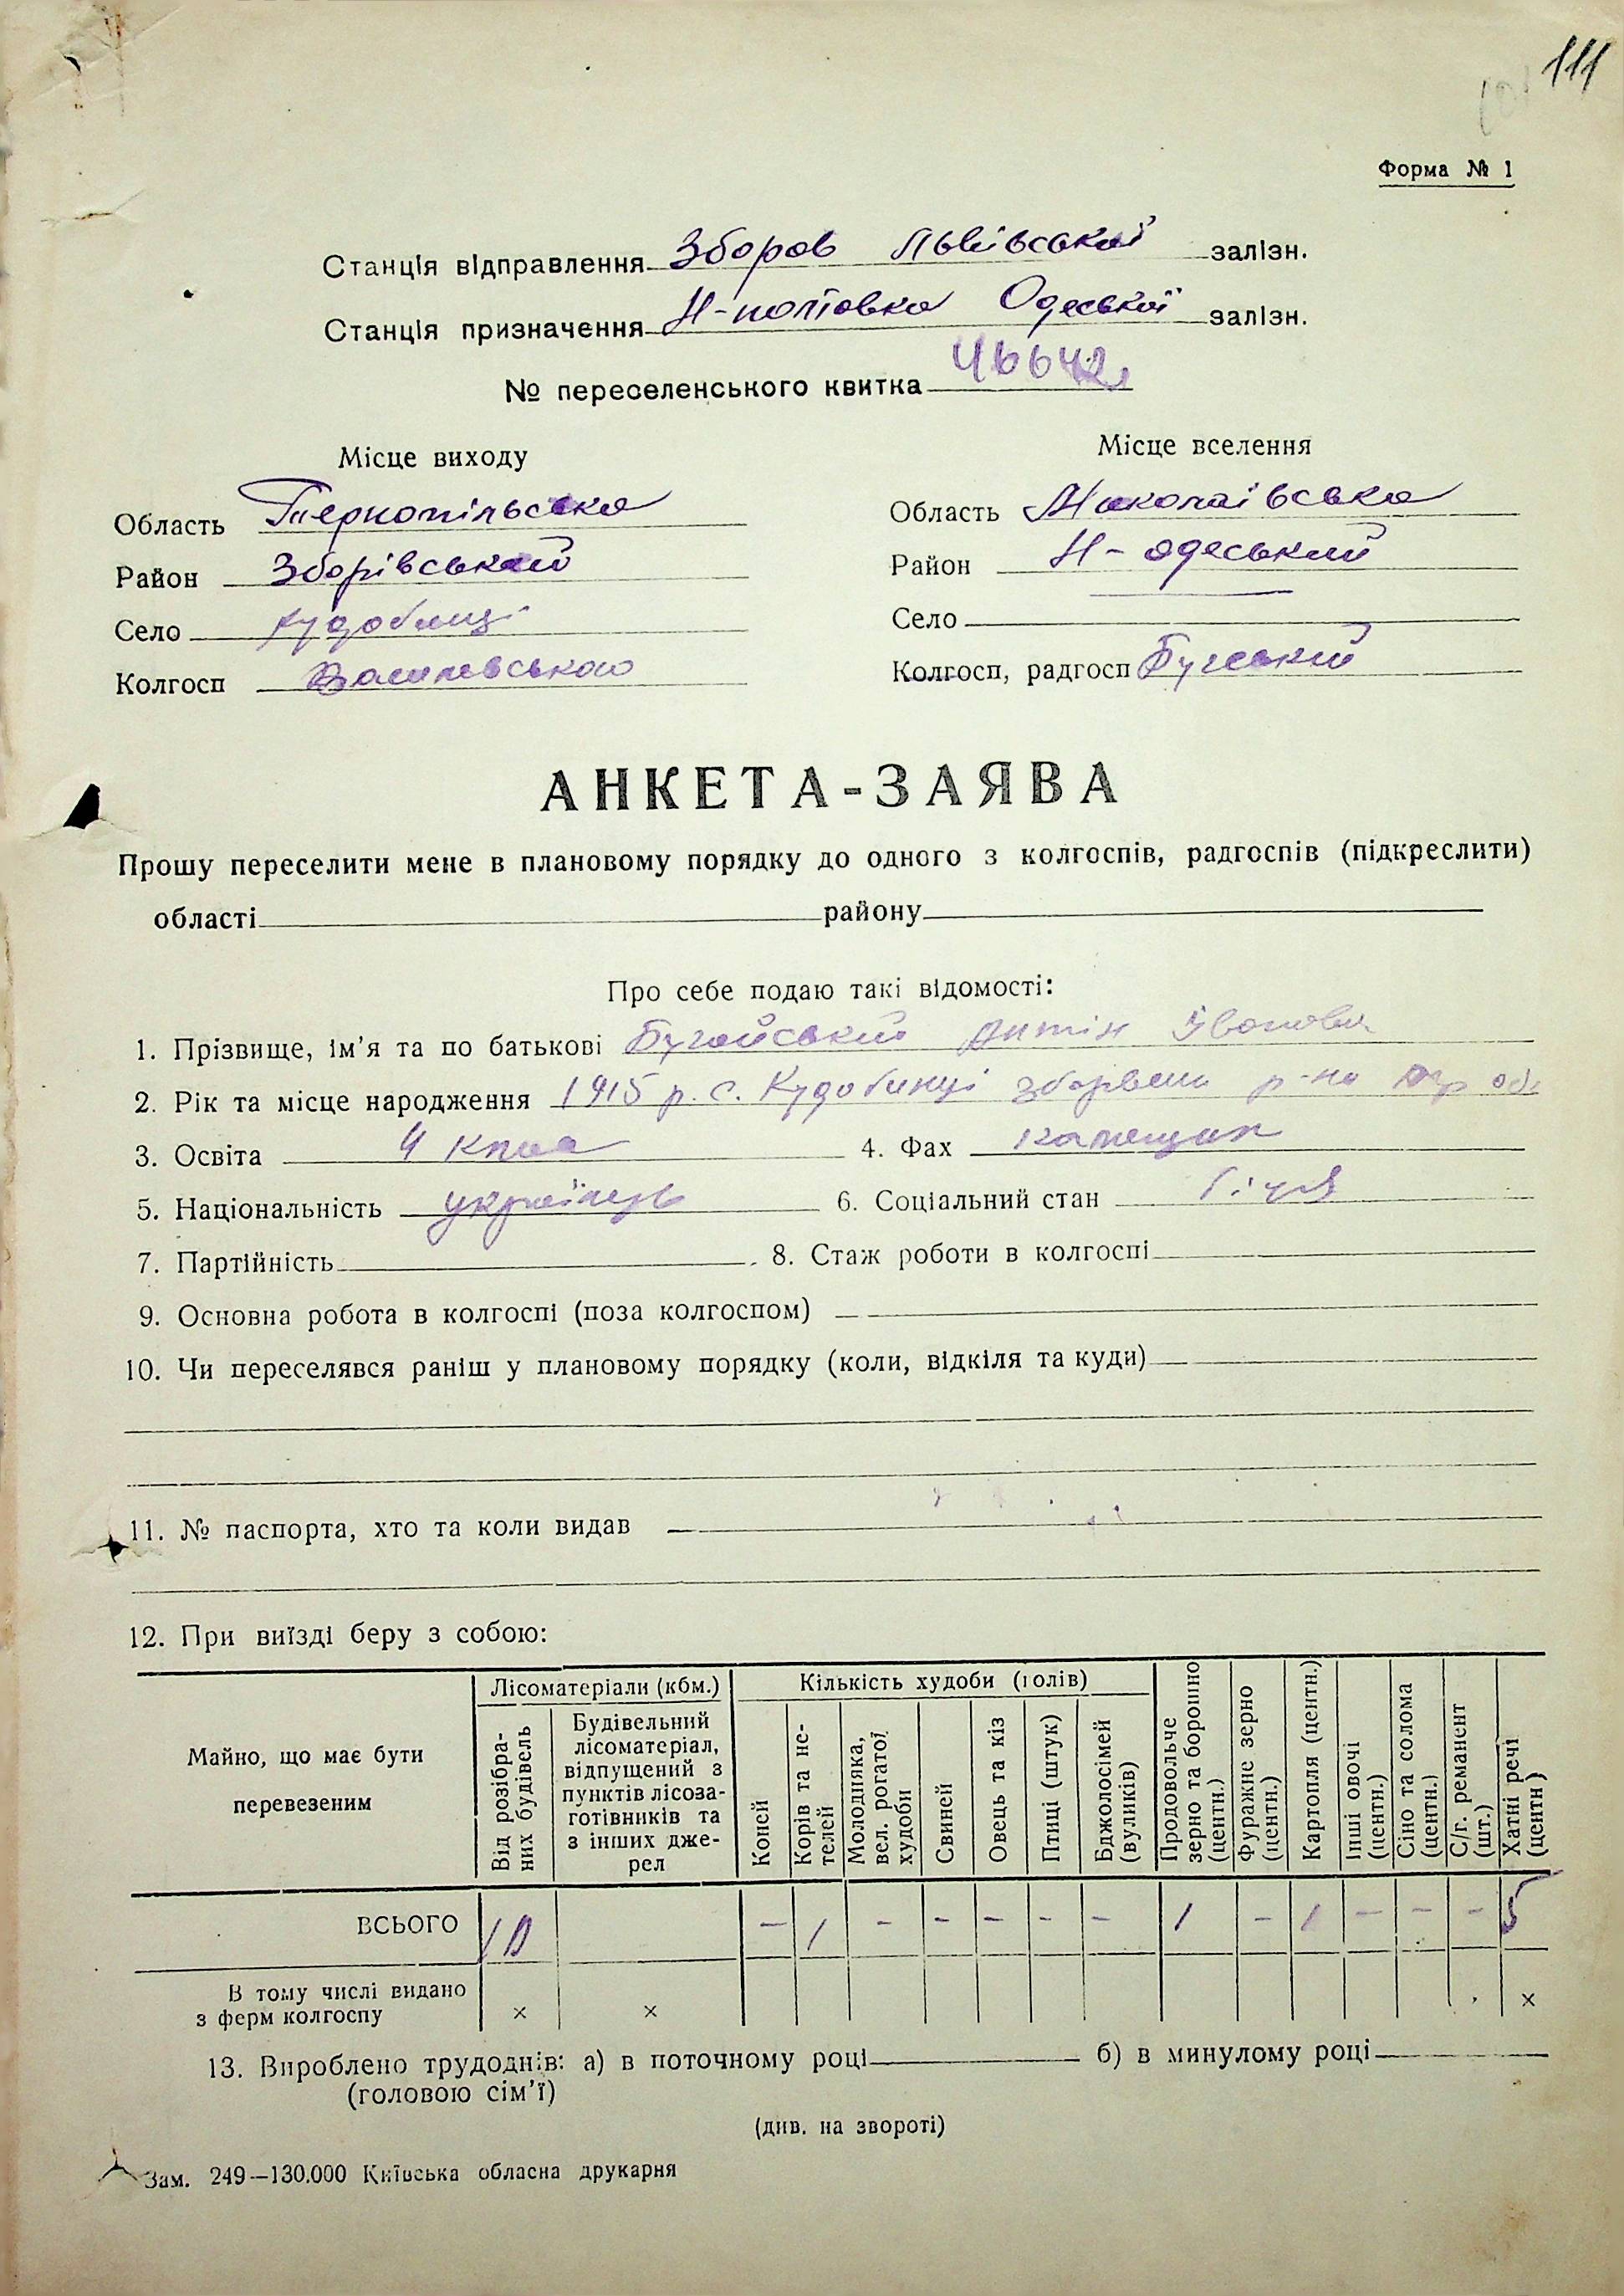 111
Форма № 1
Станція відправлення Зборов Львівської залізн.
Станція призначення Н-полтовка Одеської залізн.
№ переселенського квитка 46642
Місце виходу
Місце вселення
Область Тернопільська
Область Миколаївська
Район Зборівський
Район Н-одеський
Село Кудобинці
Село
Колгосп Василевського
Колгосп, радгосп Бугський
АНКЕТА-ЗАЯВА
Прошу переселити мене в плановому порядку до одного з колгоспів, радгоспів (підкреслити)
області району
Про себе подаю такі відомості:
1. Прізвище, ім'я та по батькові Бугайський Антін Іванович
2. Рік та місце народження 1915 р. с. Кудобинці зборівськ р-на Тер обл
3. Освіта 4 класа 4. Фах каменщик
5. Національність українець 6. Соціальний стан
7. Партійність 8. Стаж роботи в колгоспі
9. Основна робота в колгоспі (поза колгоспом)
10. Чи переселявся раніш у плановому порядку (коли, відкіля та куди)
11. № паспорта, хто та коли видав
12. При виїзді беру з собою:
Майно, що має бути перевезеним
Лісоматеріали (кбм.)
Від розібра-
них будівель
Будівельний
лісоматеріал,
відпущений з
пунктів лісоза-
готівників та
з інших дже-
рел
Кількість худоби (голів)
Коней
Корів та не-
телей
Молодняка,
вел. рогатої
худоби
Свиней
Овець та кіз
Птиці (штук)
Бджолосімей
(вуликів)
Продовольче
зерно та борошно
(центн.)
Фуражне зерно
(центн.)
Картопля (центн.)
Інші овочі
(центн.)
Сіно та солома
(центн.)
С/г. реманент
(шт.)
Хатні речі
(центн)
ВСЬОГО 10 - 1 - - - - - 1 - 1 - - - 5
В тому числі видано
з ферм колгоспу × × ×
13. Вироблено трудоднів: а) в поточному році б) в минулому році
(головою сім'ї)
(див. на звороті)
Зам. 249—130.000 Київська обласна друкарня